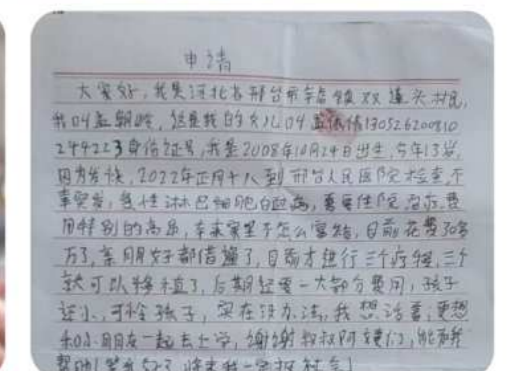 申请
大家好，我是河北省邢台市 村民，
我叫孟朝 ，这是我的女儿叫孟 130526200810
244223身份证号，我是2008年10月24日出生，今年13岁，
因为发烧，2022年正月十八到邢台人民医院检查，不
幸突发，急性淋巴细胞白血病，需要住院治疗，费
用特别的高昂，本来家里不怎么富裕，目前花费30多
万了，亲朋好友都借遍了，目前才进行三个疗程，三个
就可以移植了，后期还要一大部分费用，孩子
还小，可怜孩子，实在没办法，我想活着，更想
和小朋友一起去上学，谢谢叔叔阿姨们，能
帮助！等我好了，将来我一定报 社会！